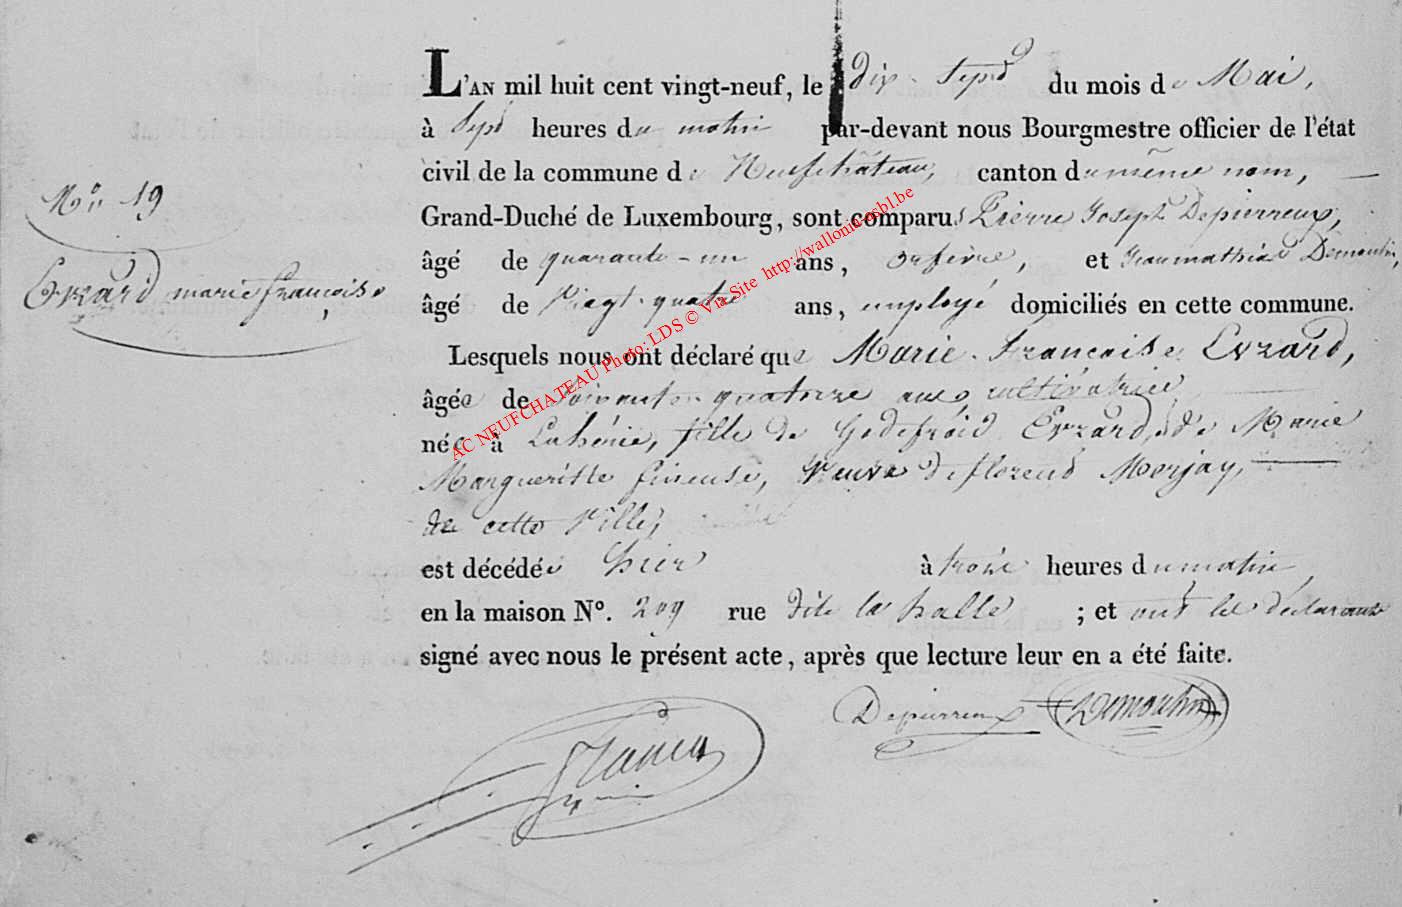 L'AN mil huit cent vingt-neuf, le dix-sept du mois de Mai,
à sept heures du matin par-devant nous Bourgmestre officier de l'état
civil de la commune de Neufchâteau, canton du même nom,
Grand-Duché de Luxembourg, sont comparus Pierre Joseph Depierreux,
âgé de quarante-un ans, orfèvre, et Jean mathias Demoulin,
âgé de vingt-quatre ans, employé domiciliés en cette commune.
Lesquels nous ont déclaré que Marie-Françoise Evrard,
âgée de soixante quatorze ans, cultivatrice
née à Lahérie, fille de Godefroid Evrard, & de Marie
Margueritte veuve de florend Morjay,
de cette Ville,
est décédée hier à trois heures du matin,
en la maison N°. 209 rue dite la halle ; et ont les déclarants
signé avec nous le présent acte, après que lecture leur en a été faite.
Depierreux Demoulin
N° 19
Evrard marie françoise,
AC NEUFCHATEAU Photo: LDS © Via Site http://wallonia-asbl.be